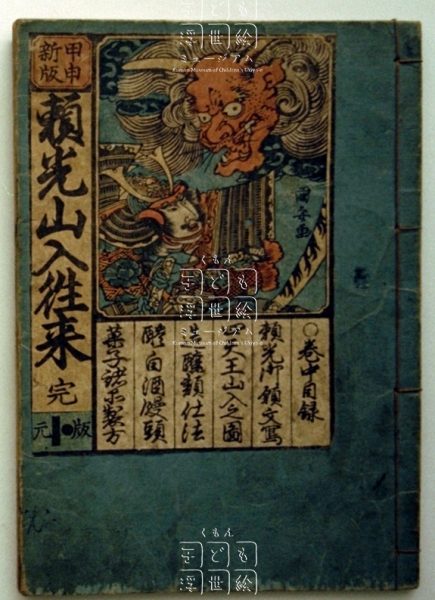 甲申
新版
頼光山入往来
完
元版
國安画
○巻中目録
頼光御願文写
天王山入之図
醸類仕法
醴白酒饅頭
菓子諸品製方
くもん
子ども
浮世絵
ミュージアム
Kumon Museum of Children's Ukiyo-e
くもん
子ども
浮世絵
ミュージアム
Kumon Museum of Children's Ukiyo-e
くもん
子ども
浮世絵